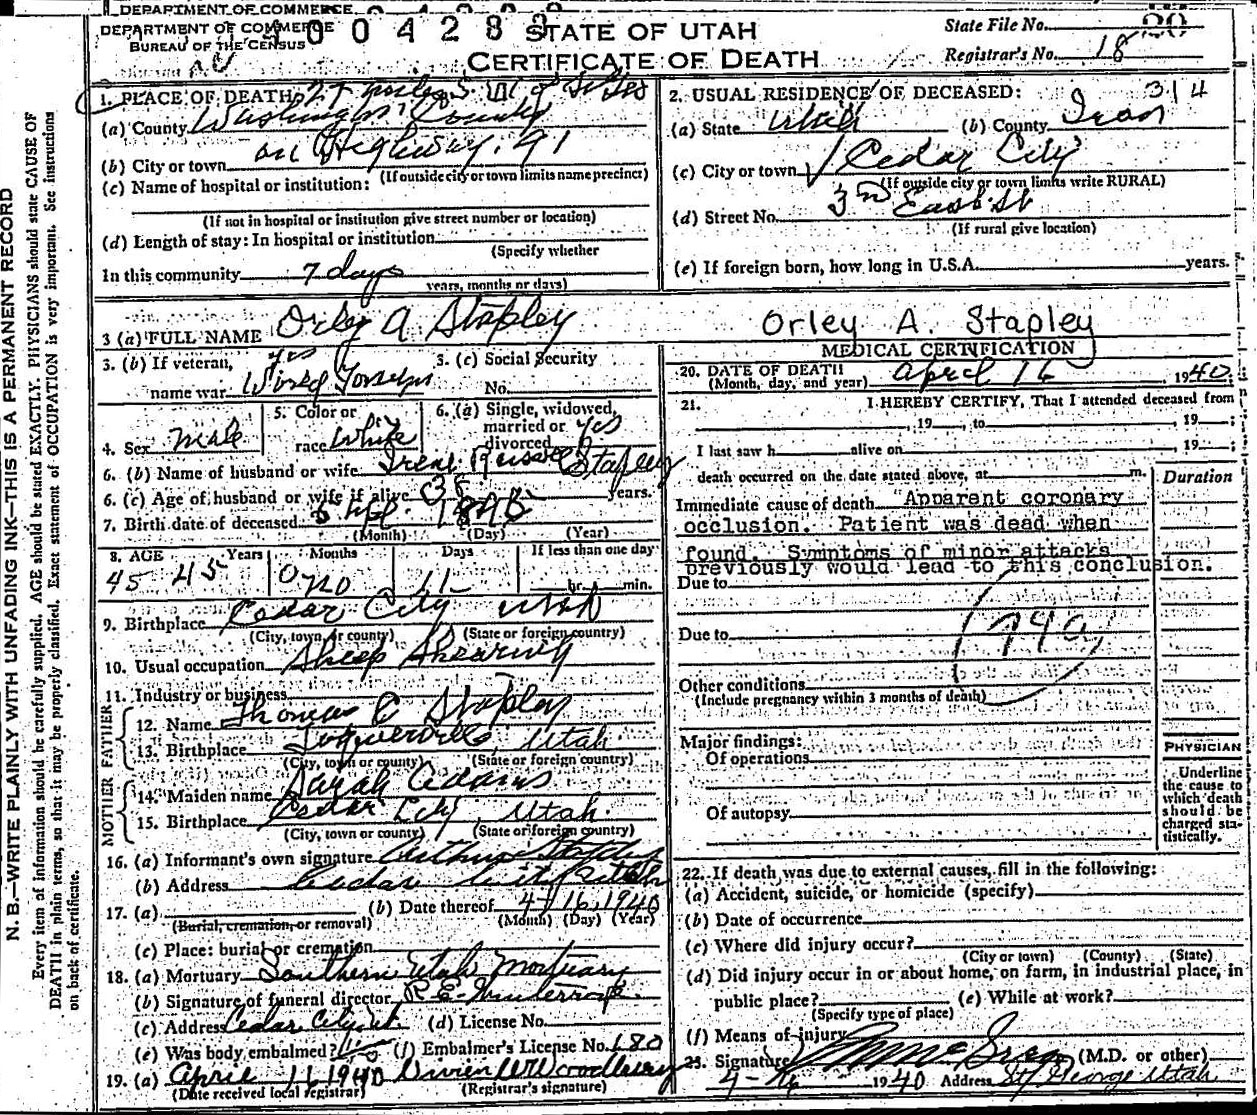 DEPARTMENT OF COMMERCE
DEPARTMENT OF COMMERCE
BUREAU OF THE CENSUS
0 0 4 2 8
STATE OF UTAH
CERTIFICATE OF DEATH
State File No.
Registrar's No. 18
N.B.—WRITE PLAINLY WITH UNFADING INK—THIS IS A PERMANENT RECORD
Every item of information should be carefully supplied. AGE should be stated EXACTLY. PHYSICIANS should state CAUSE OF
DEATH in plain terms, so that it may be properly classified. Exact statement of OCCUPATION is very important. See instructions
on back of certificate.
1. PLACE OF DEATH: 27 miles S. W. of St Geo
(a) County Washington County
on Highway 91
(b) City or town
(If outside city or town limits name precinct)
(c) Name of hospital or institution:
(If not in hospital or institution give street number or location)
(d) Length of stay: In hospital or institution
(Specify whether
In this community 7 days
years, months or days)
2. USUAL RESIDENCE OF DECEASED: 314
(a) State Utah (b) County Iron
(c) City or town Cedar City
(If outside city or town limits write RURAL)
(d) Street No. 3rd East St
(If rural give location)
(e) If foreign born, how long in U.S.A. years.
3 (a) FULL NAME Orley A Stapley
Orley A. Stapley
3. (b) If veteran, yes
name war World
3. (c) Social Security
No.
4. Sex Male
5. Color or
race White
6. (a) Single, widowed,
married or
divorced yes
6. (b) Name of husband or wife Irene Stapley
6. (c) Age of husband or wife if alive 38 years.
7. Birth date of deceased
(Month) (Day) (Year)
8. AGE Years Months Days If less than one day
45 45 0 no 11 hr. min.
9. Birthplace Cedar City Utah
(City, town or county) (State or foreign country)
10. Usual occupation Sheep Shearing
11. Industry or business
FATHER
12. Name Thomas C Stapley
13. Birthplace Toquerville, Utah
(City, town or county) (State or foreign country)
MOTHER
14. Maiden name Sarah Adams
15. Birthplace Cedar City, Utah
(City, town or county) (State or foreign country)
16. (a) Informant's own signature Arthur Stapley
(b) Address Cedar City Utah
17. (a) (b) Date thereof 4-16, 1940
(Burial, cremation, or removal) (Month) (Day) (Year)
(c) Place: burial or cremation
18. (a) Mortuary Southern Utah Mortuary
(b) Signature of funeral director R. E.
(c) Address Cedar City ut. (d) License No.
(e) Was body embalmed? (f) Embalmer's License No. 180
19. (a) April 1940 Woodbury
(Date received local registrar) (Registrar's signature)
MEDICAL CERTIFICATION
20. DATE OF DEATH
(Month, day, and year) April 16 1940
21. I HEREBY CERTIFY, That I attended deceased from
, 19 , to , 19 ;
I last saw h alive on , 19 ;
death occurred on the date stated above, at m.
Duration
Immediate cause of death Apparent coronary
occlusion. Patient was dead when
found. Symptoms of minor attacks
previously would lead to this conclusion.
Due to
Due to
(94a)
Other conditions
(Include pregnancy within 3 months of death)
Major findings:
Of operations
Of autopsy
PHYSICIAN
Underline
the cause to
which death
should be
charged sta-
tistically.
22. If death was due to external causes, fill in the following:
(a) Accident, suicide, or homicide (specify)
(b) Date of occurrence
(c) Where did injury occur?
(City or town) (County) (State)
(d) Did injury occur in or about home, on farm, in industrial place, in
public place? (e) While at work?
(Specify type of place)
(f) Means of injury
23. Signature (M.D. or other)
1940 Address St George Utah